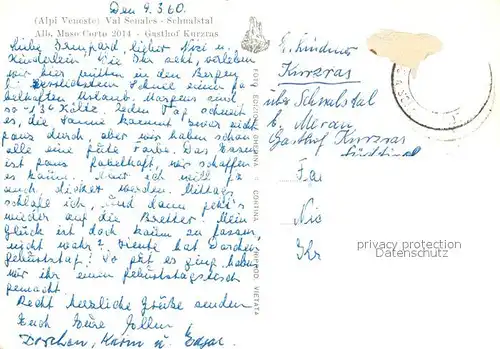 Den 9.3.60.
(Alpi Venoste) Val Senales - Schnalstal
Alb. Maso Corto 2014 - Gasthof Kurzras
Liebe lieber und
Kinderlein Wie Ihr seht, verleben
wir hier mitten in den Bergen
im herrlichsten Schnee einen fa-
belhaften Urlaub. Morgens sind
so -13 Kältz den Tag schneit
es, die Sonne kommt zwar nicht
ganz durch aber wir haben schon
alle eine gute Farbe. Das Essen
ist ganz fabelhaft, wir schaffen
es kaum. Mir ich will ja
auch dicker werden. Mittag
schlafe ich, und dann geht's
wieder auf die Bretter. Mein
Glück ist doch kaum zu fassen,
nicht wahr? Heute hat Dorchen
Geburtstag. So gut es ging haben
wir ihr einen Geburtstagstisch
gemacht.
Recht herzliche Grüße senden
Euch Eure
Dorchen, Karin u. Edgar.
FOTO EDIZIONE GHEDINA - CORTINA
RIPROD. VIETATA
E. Lindner
Kurzras
über Schnalstal
b. Meran
Gasthof Kurzras
Südtirol
Fa
Nic
Ihr
privacy protection
Datenschutz